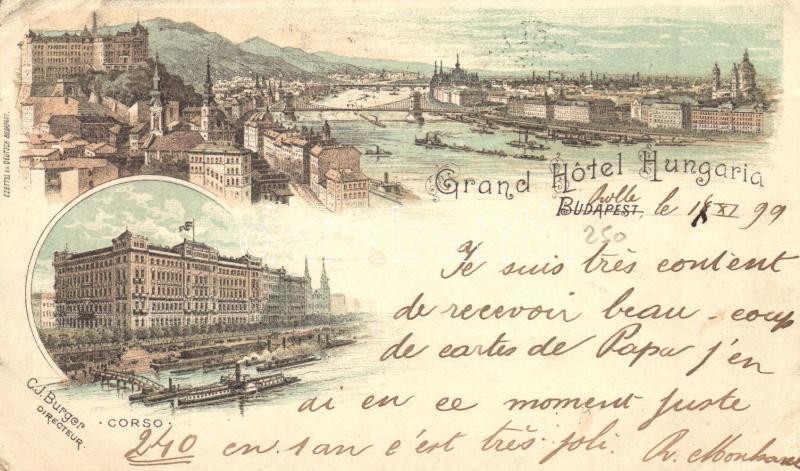 CZETTEL ÉS DEUTSCH BUDAPEST.
Grand Hôtel Hungaria
Rolle
BUDAPEST, le 1 XI 99
250
Je suis très content
de recevoir beau-coup
de cartes de Papa j'en
ai en ce moment juste
240 en 1 an c'est très joli.
C.J. Burger
DIRECTEUR.
CORSO